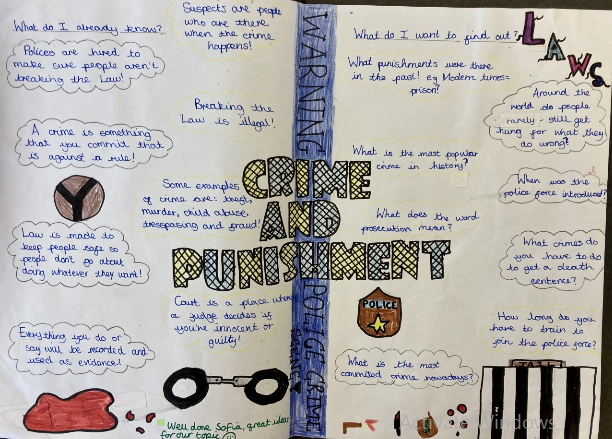 What do I already know?
Polices are hired to
make sure people aren't
breaking the Law!
A crime is something
that you commit that
is against a rule!
Law is made to
keep people safe so
people don't go about
doing whatever they want!
Everything you do or
say will be recorded and
used as evidence!
Suspects are people
who are there
when the crime
happens!
Breaking the
Law is illegal!
Some examples
of crime are: theft,
murder, child abuse,
trespassing and fraud!
Court is a place where
a judge decides if
you're innocent or
guilty!
Well done Sofia, great ideas
for our topic
WARNING
POLICE CRIME
CRIME
AND
PUNISHMENT
What do I want to find out?
LAWS
What punishments were there
in the past! eg Modern times=
prison!
What is the most popular
crime in history?
What does the word
prosecution mean?
POLICE
What is the most
commited crime nowadays?
Around the
world do people
rarely still get
hung for what they
do wrong?
When was the
police force introduced?
What crimes do
you have to do
to get a death
sentence?
How long do you
have to train to
join the police force?
Activate Windows